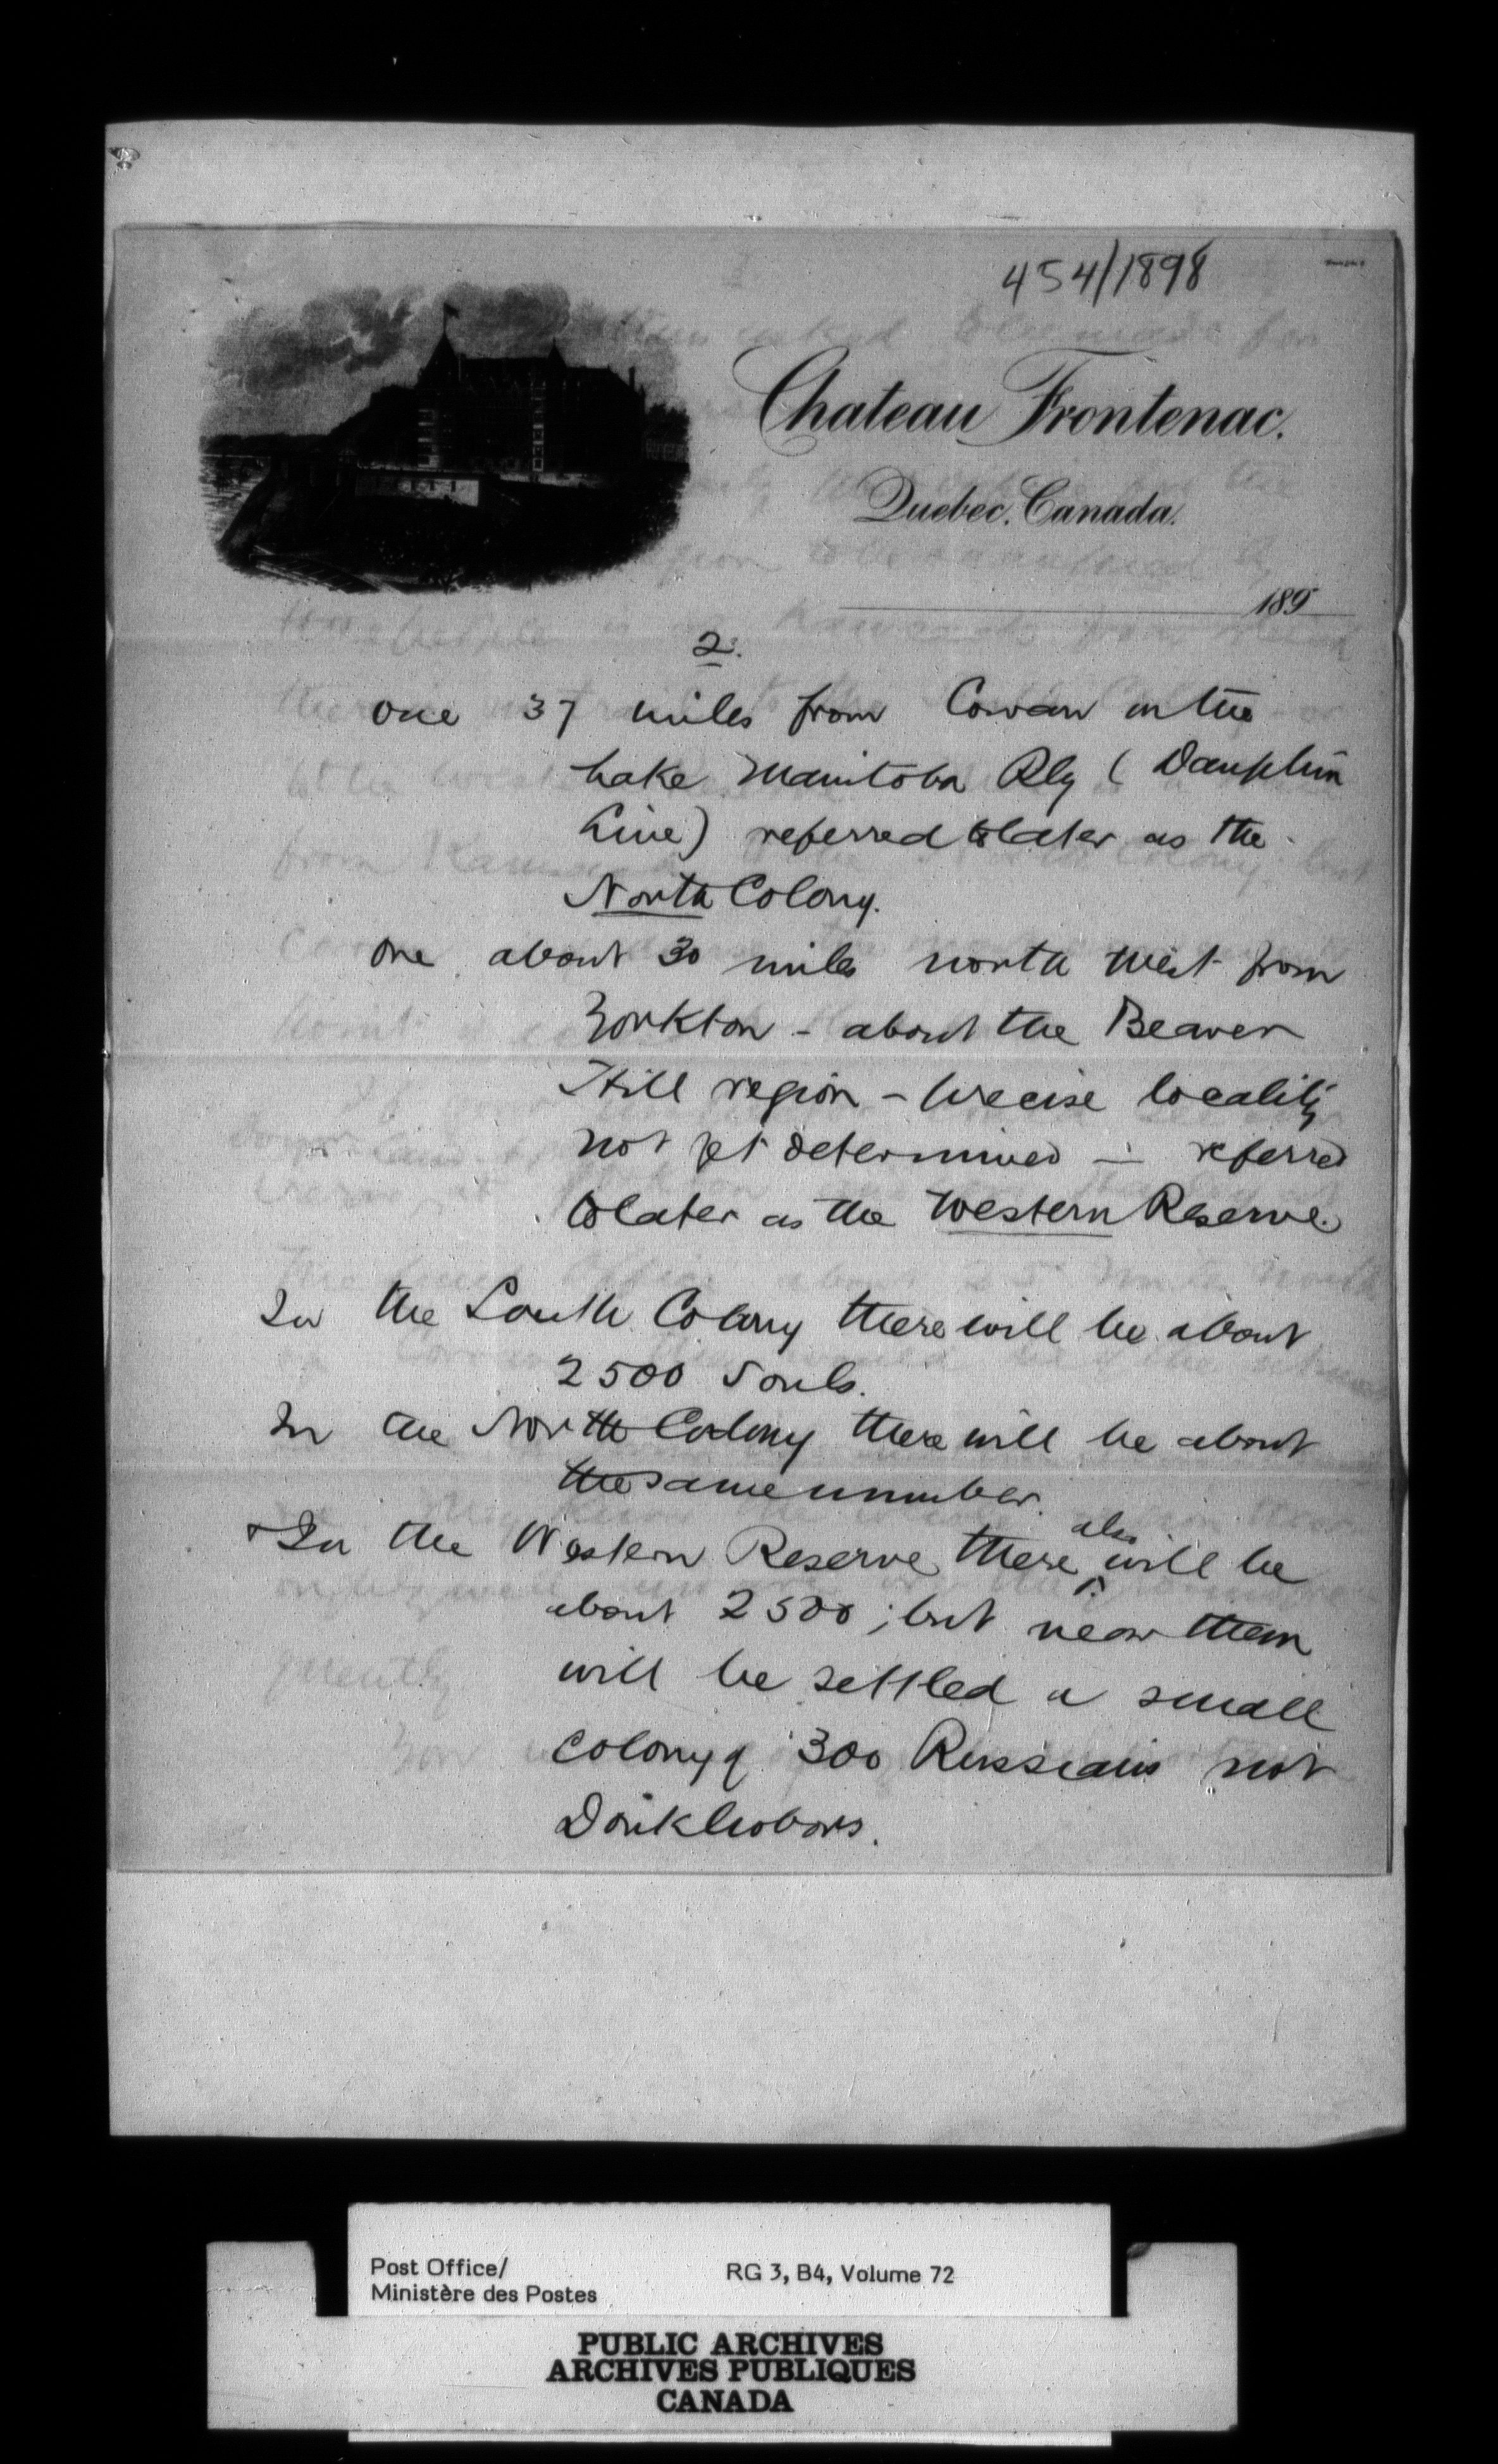 454/1898
Chateau Frontenac.
Quebec. Canada.
189
2.
One 37 miles from Cowan on the
Lake Manitoba Rly (Dauphin
Line) referred to later as the
North Colony.
One about 30 miles north west from
Yorkton - about the Beaver
Hill region - precise locality
not yet determined - referred
to later as the Western Reserve.
In the South Colony there will be about
2500 Souls.
In the North Colony there will be about
the same number.
+ In the Western Reserve there also will be
about 2500; but near them
will be settled a small
colony of 300 Russians not
Doukhobors.
Post Office/
Ministère des Postes
RG 3, B4, Volume 72
PUBLIC ARCHIVES
ARCHIVES PUBLIQUES
CANADA